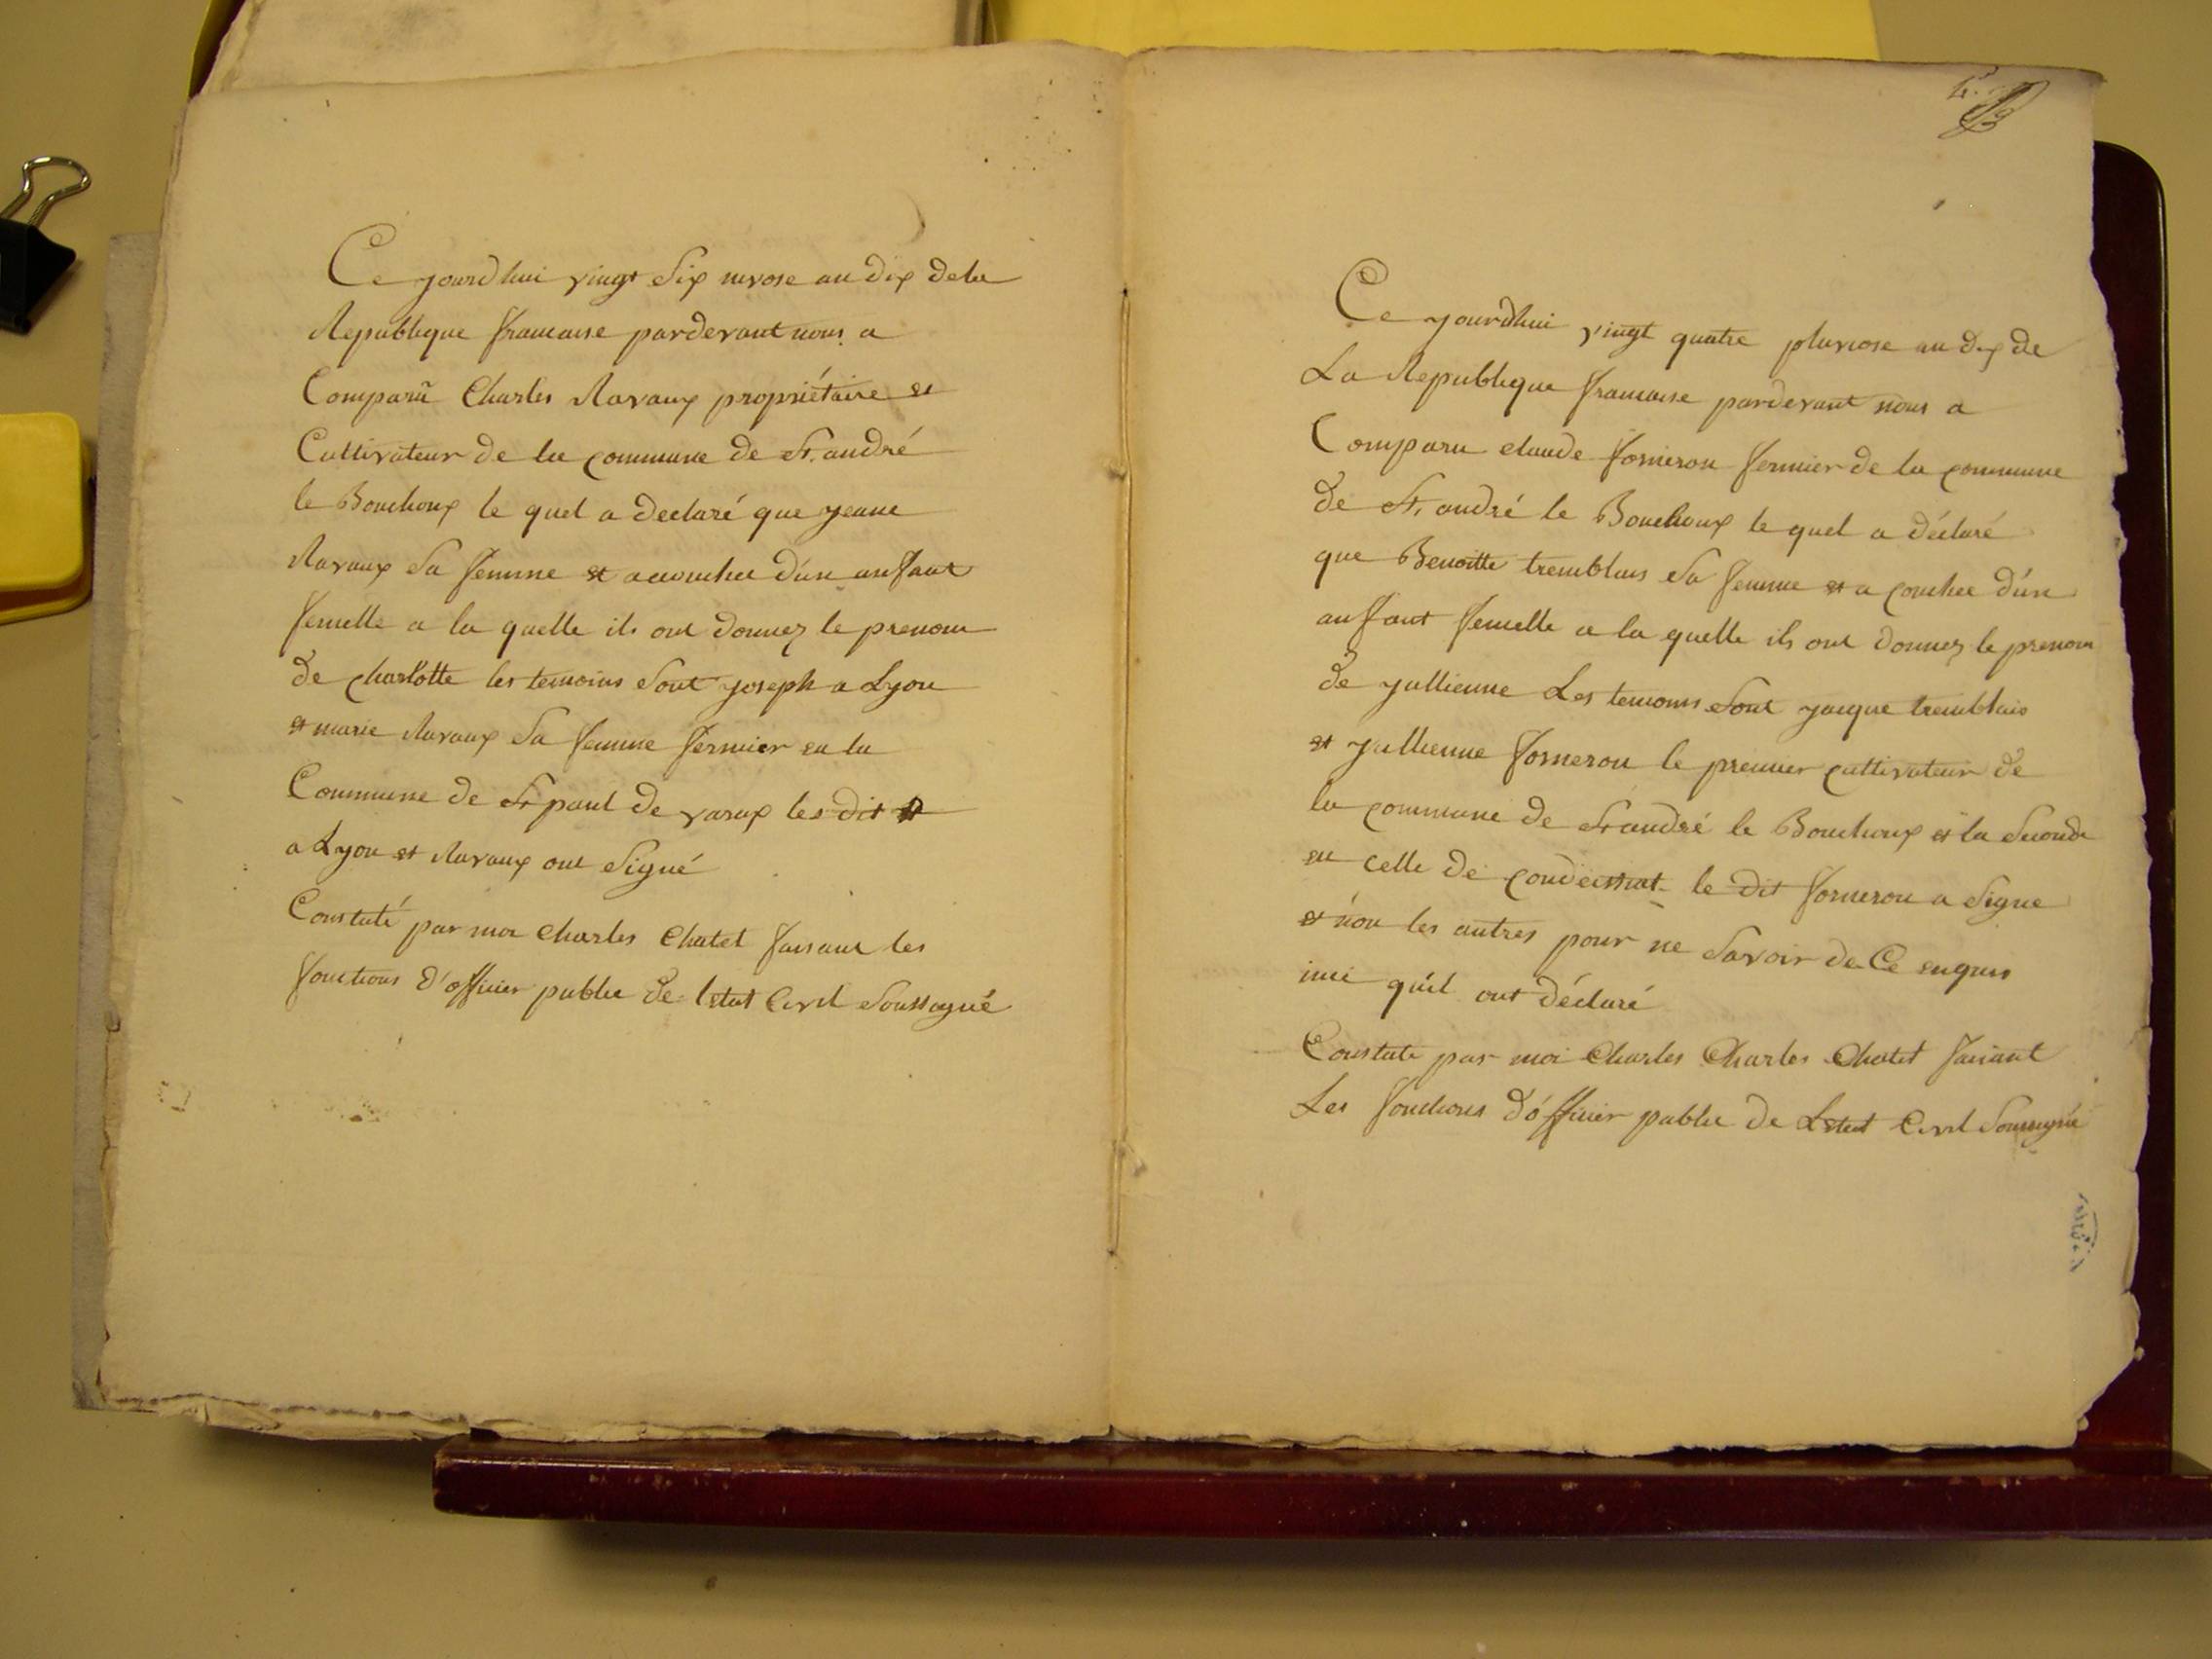 Ce yourdhui vingt Six nivose an dix dela
Republique francaise pardevant nous a
Comparu Charles Ravaux propriétaire et
Cultivateur de la commune de St. andré
le Bouchoux le quel a declaré que yeane
Ravaux Sa femme et accouchee d'un anfant
femelle a la quelle ils ont donnez le prenom
de charlotte les temoins Sont yoseph a Lyon
et marie Ravaux Sa femme fermier en la
Commune de St paul de varax les dit
a Lyon et Ravaux ont Signé
Constaté par moi Charles Chatel faisant les
fonctions d'officier public de letat Civil Soussigné
4.
Ce yourdhui vingt quatre pluviose an dix de
La Republique francaise pardevant nous a
Comparu claude forneron fermier de la commune
de St. andré le Bouchoux le quel a déclaré
que Benoitte tremblais Sa femme et a couchee d'un
anfant femelle a la quelle ils ont donnez le prenom
de yullienne Les temoins Sont yacque tremblais
et yullienne forneron le premier cultivateur de
la commune de St andré le Bouchoux et la Seconde
en celle de condeissiat le dit forneron a Signe
et non les autres pour ne Savoir de Ce enquis
inci qu'il ont déclaré
Constate par moi Charles Charles Chatel faisant
Les fonctions d'officier public de Letat Civil Soussigné